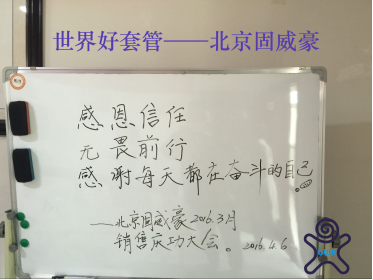 世界好套管——北京固威豪
感恩信任
无畏前行
感谢每天都在奋斗的自己
——北京固威豪2016.3月
销售庆功大会。2016.4.6